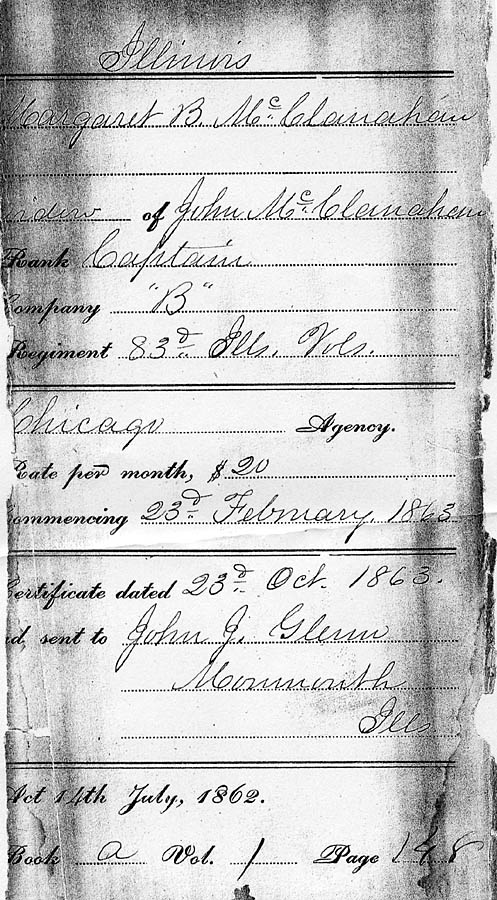 Illinois
Margaret B. McClanahan
widow of John McClanahan
Rank Captain
Company "B"
Regiment 83d Ills. Vols.
Chicago Agency.
Rate per month, $20
Commencing 23d February, 1863
Certificate dated 23d Oct. 1863.
and sent to John J. Glenn
Monmouth
Ills
Act 14th July, 1862.
Book a Vol. 1 Page 148